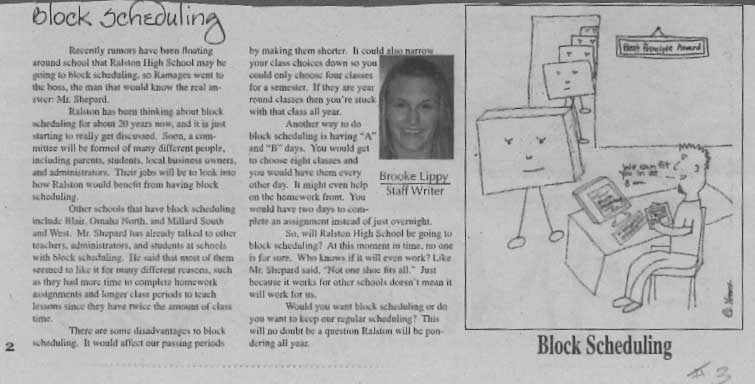 Block Scheduling
Recently rumors have been floating
around school that Ralston High School may be
going to block scheduling, so Ramages went to
the boss, the man that would know the real an-
swer: Mr. Shepard.
Ralston has been thinking about block
scheduling for about 20 years now, and it is just
starting to really get discussed. Soon, a com-
mittee will be formed of many different people,
including parents, students, local business owners,
and administrators. Their jobs will be to look into
how Ralston would benefit from having block
scheduling.
Other schools that have block scheduling
include Blair, Omaha North, and Millard South
and West. Mr. Shepard has already talked to other
teachers, administrators, and students at schools
with block scheduling. He said that most of them
seemed to like it for many different reasons, such
as they had more time to complete homework
assignments and longer class periods to teach
lessons since they have twice the amount of class
time.
There are some disadvantages to block
scheduling. It would affect our passing periods
2
by making them shorter. It could also narrow
your class choices down so you
could only choose four classes
for a semester. If they are year
round classes then you're stuck
with that class all year.
Another way to do
block scheduling is having "A"
and "B" days. You would get
to choose eight classes and
you would have them every
other day. It might even help
on the homework front. You
would have two days to com-
plete an assignment instead of just overnight.
So, will Ralston High School be going to
block scheduling? At this moment in time, no one
is for sure. Who knows if it will even work? Like
Mr. Shepard said, "Not one shoe fits all." Just
because it works for other schools doesn't mean it
will work for us.
Would you want block scheduling or do
you want to keep our regular scheduling? This
will no doubt be a question Ralston will be pon-
dering all year.
Brooke Lippy
Staff Writer
Best Principle Award
We can fit
you in at
8 am
Block Scheduling
# 3